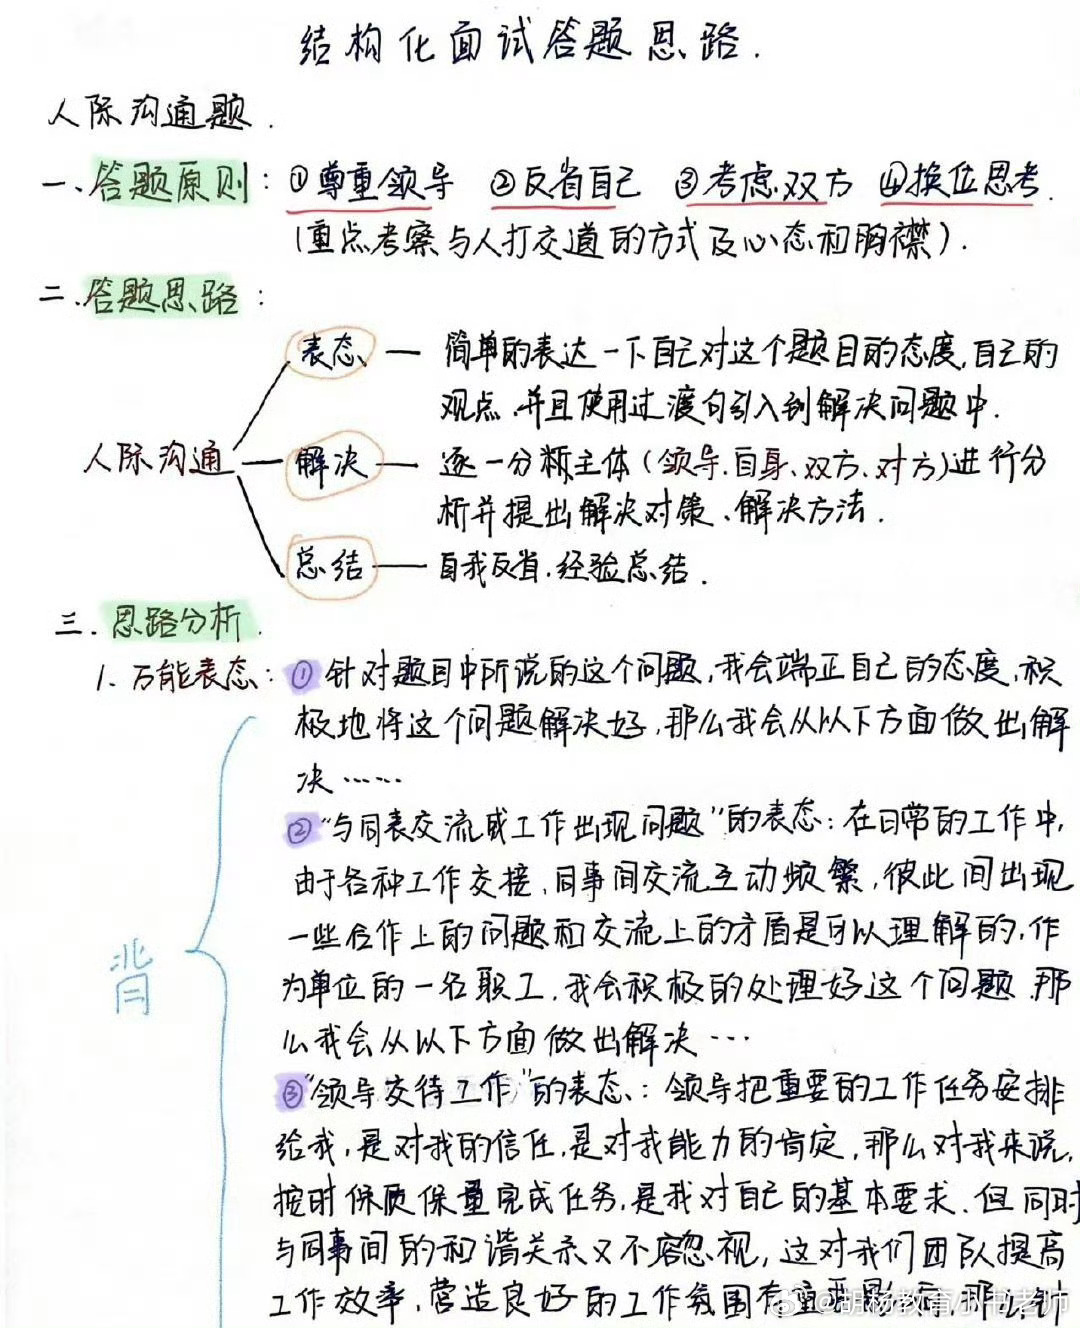 结构化面试答题思路.
人际沟通题.
一、答题原则：①尊重领导 ②反省自己 ③考虑双方 ④换位思考.
(重点考察与人打交道的方式及心态和胸襟).
二、答题思路：
表态 — 简单的表达一下自己对这个题目的态度,自己的
观点,并且使用过渡句引入到解决问题中.
人际沟通 — 解决 — 逐一分析主体(领导.自身、双方、对方)进行分
析并提出解决对策、解决方法.
总结 — 自我反省.经验总结.
三.思路分析.
1.万能表态：①针对题目中所说的这个问题,我会端正自己的态度,积
极地将这个问题解决好,那么我会从以下方面做出解
决……
②"与同事交流或工作出现问题"的表态：在日常的工作中,
由于各种工作交接、同事间交流互动频繁,彼此间出现
一些合作上的问题和交流上的矛盾是可以理解的,作
为单位的一名职工,我会积极的处理好这个问题,那
么我会从以下方面做出解决…
背
③"领导交待工作"的表态：领导把重要的工作任务安排
给我,是对我的信任,是对我能力的肯定,那么对我来说,
按时保质保量完成任务,是我对自己的基本要求.但同时
与同事间的和谐关系又不容忽视,这对我们团队提高
工作效率,营造良好的工作氛围有重要影响,那么针
@胡杨教育小书老师